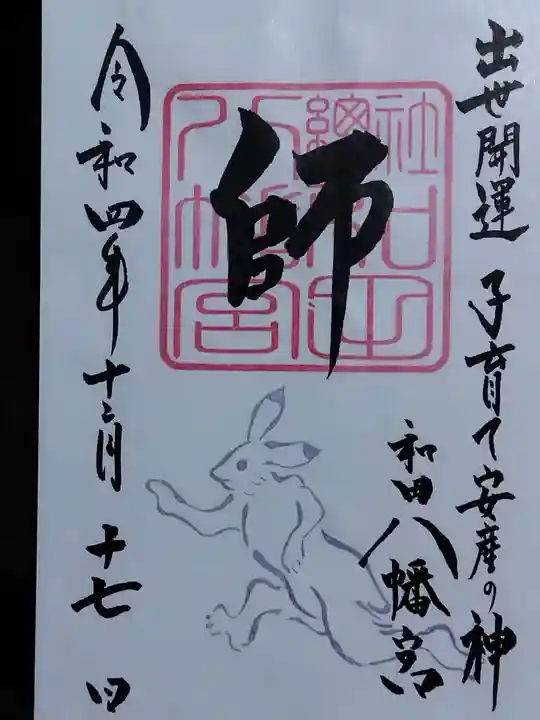 出世開運 子育て安産の神
和田八幡宮
師
總社
和田
八幡宮
令和四年十二月十七日